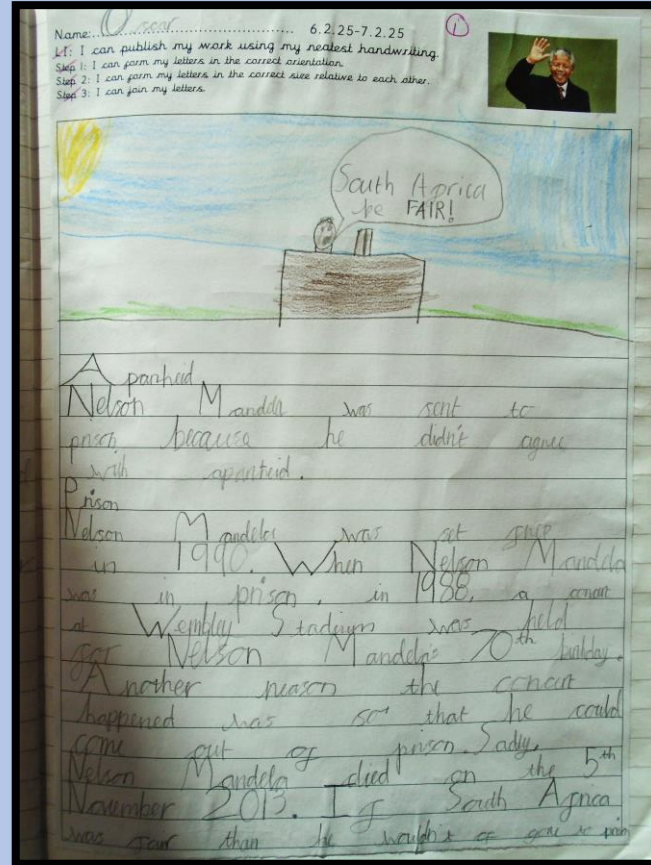 Name: Oscar 6.2.25-7.2.25 1
LI: I can publish my work using my neatest handwriting.
Step 1: I can form my letters in the correct orientation.
Step 2: I can form my letters in the correct size relative to each other.
Step 3: I can join my letters.
South Africa
be FAIR!
Apartheid
Nelson Mandela was sent to
prison because he didn't agree
with apartheid.
Prison
Nelson Mandela was set free
in 1990. When Nelson Mandela
was in prison, in 1988, a concert
at Wembley Stadium was held
for Nelson Mandela's 70th birthday.
Another reason the concert
happened was so that he could
come out of prison. Sadly,
Nelson Mandela died on the 5th
November 2013. If South Africa
was fair than he wouldn't of gone to prison